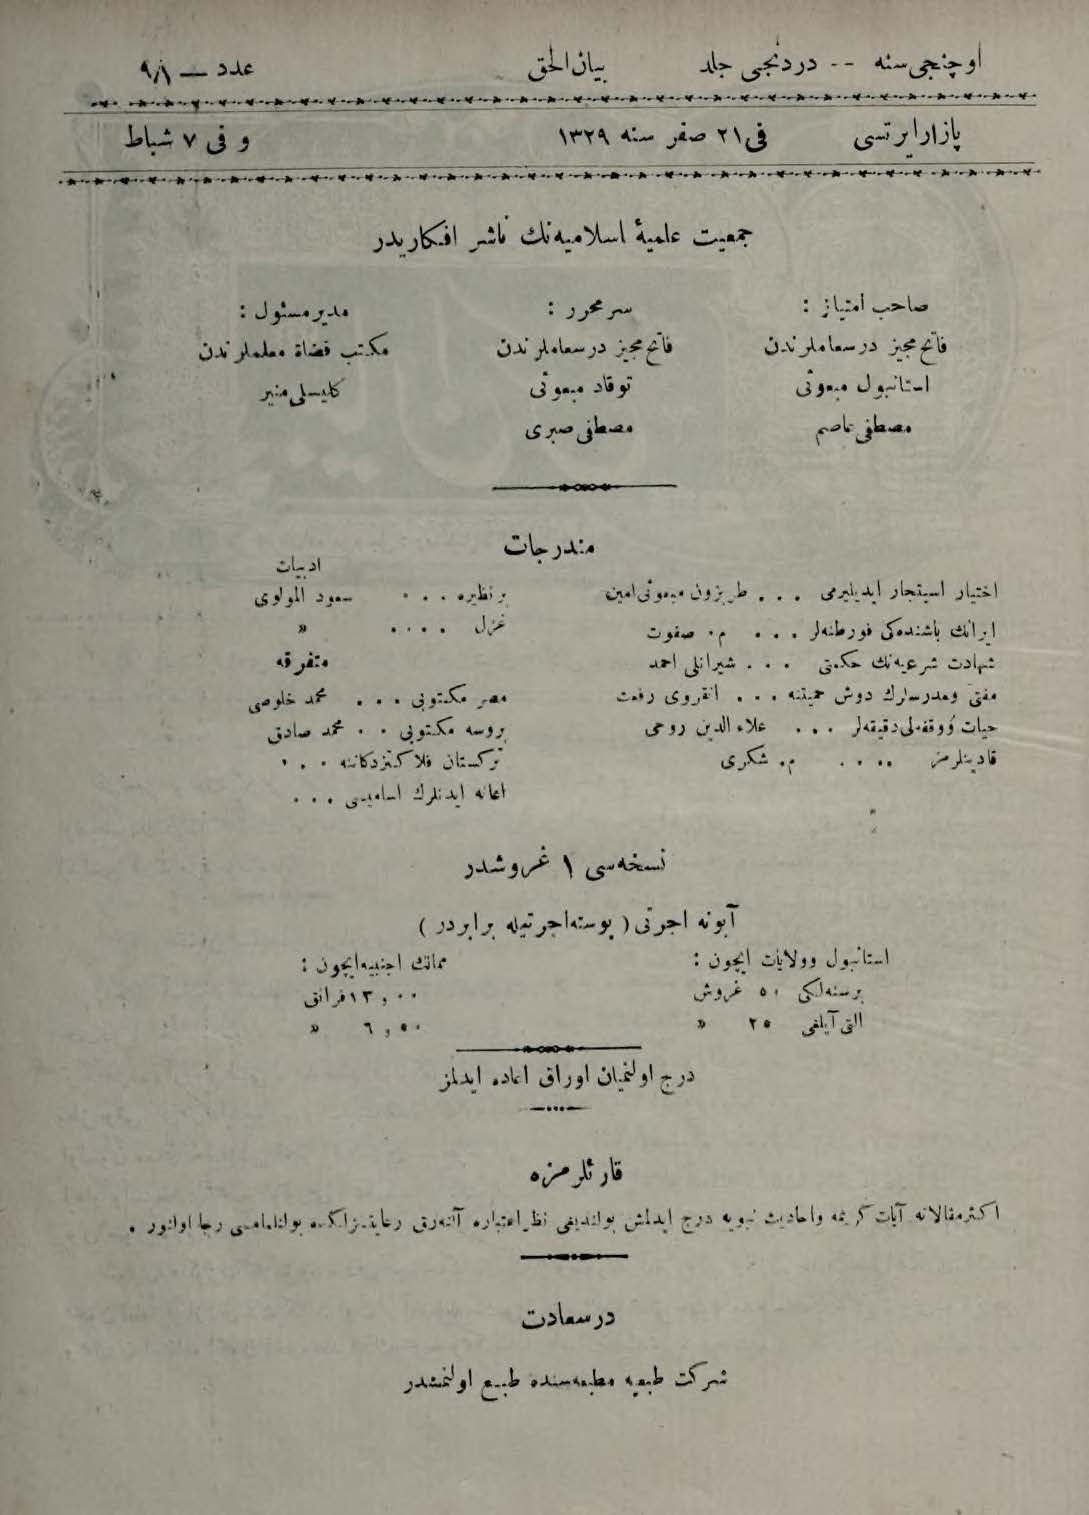 اوچنجی سنه -- دردنجی جلد بیان الحق عدد — ۹۸
پازارایرتسی فی ۲۱ صفر سنه ۱۳۲۹ و فی ۷ شباط
جمعیت علمیهٔ اسلامیه‌نك ناشر افكاریدر
صاحب امتیاز :
فاتح مجیز درسعاملرندن
استانبول مبعوثی
مصطفی عاصم
سرمحرر :
فاتح مجیز درسعاملرندن
توقاد مبعوثی
مصطفی صبری
مدیر مسئول :
مكتب قضاة معلملرندن
كلیسلی منیر
مندرجات
اختیار استیجار ایدیلیرمی . . . طربزون مبعوثی امین
ایرانك باشنده‌كی فورطنه‌لر . . . م. صفوت
شهادت شرعیه‌نك حكمتی . . . شیرانلی احمد
مفتی ومدرسلرك دوش حمیتنه . . . انقروی رفعت
حیات ووقفه‌لی دقیقه‌لر . . . علاء الدین روحی
قادینلرمز . . . . م. شكری
ادبیات
بر نظیره . . . سعود المولوی
غزل . . . . »
متفرقه
مصر مكتوبی . . . محمد خلوصی
بروسه مكتوبی . . محمد صادق
تركستان فلاكتزدكاننه . . .
اعانه ایدنلرك اسامیسی . . .
نسخه‌سی ۱ غروشدر
آبونه اجرتی ( پوسته اجرتیله برابردر )
استانبول وولایات ایچون :
برسنه‌لكی ۵۰ غروش
التی آیلغی ۲۵ »
ممالك اجنبیه ایچون :
۱۳,۰۰ فرانق
۶,۵۰ »
درج اولنمیان اوراق اعاده ایدلمز
قارئلرمزه
اكثر مقالاته آیات كریمه واحادیث نبویه درج ایدلمش بولندیغی نظر اعتباره آلنه‌رق رعایتسزلكده بولنلمامسی رجا اولنور .
درسعادت
شركت طبعیه مطبعه‌سنده طبع اولنمشدر